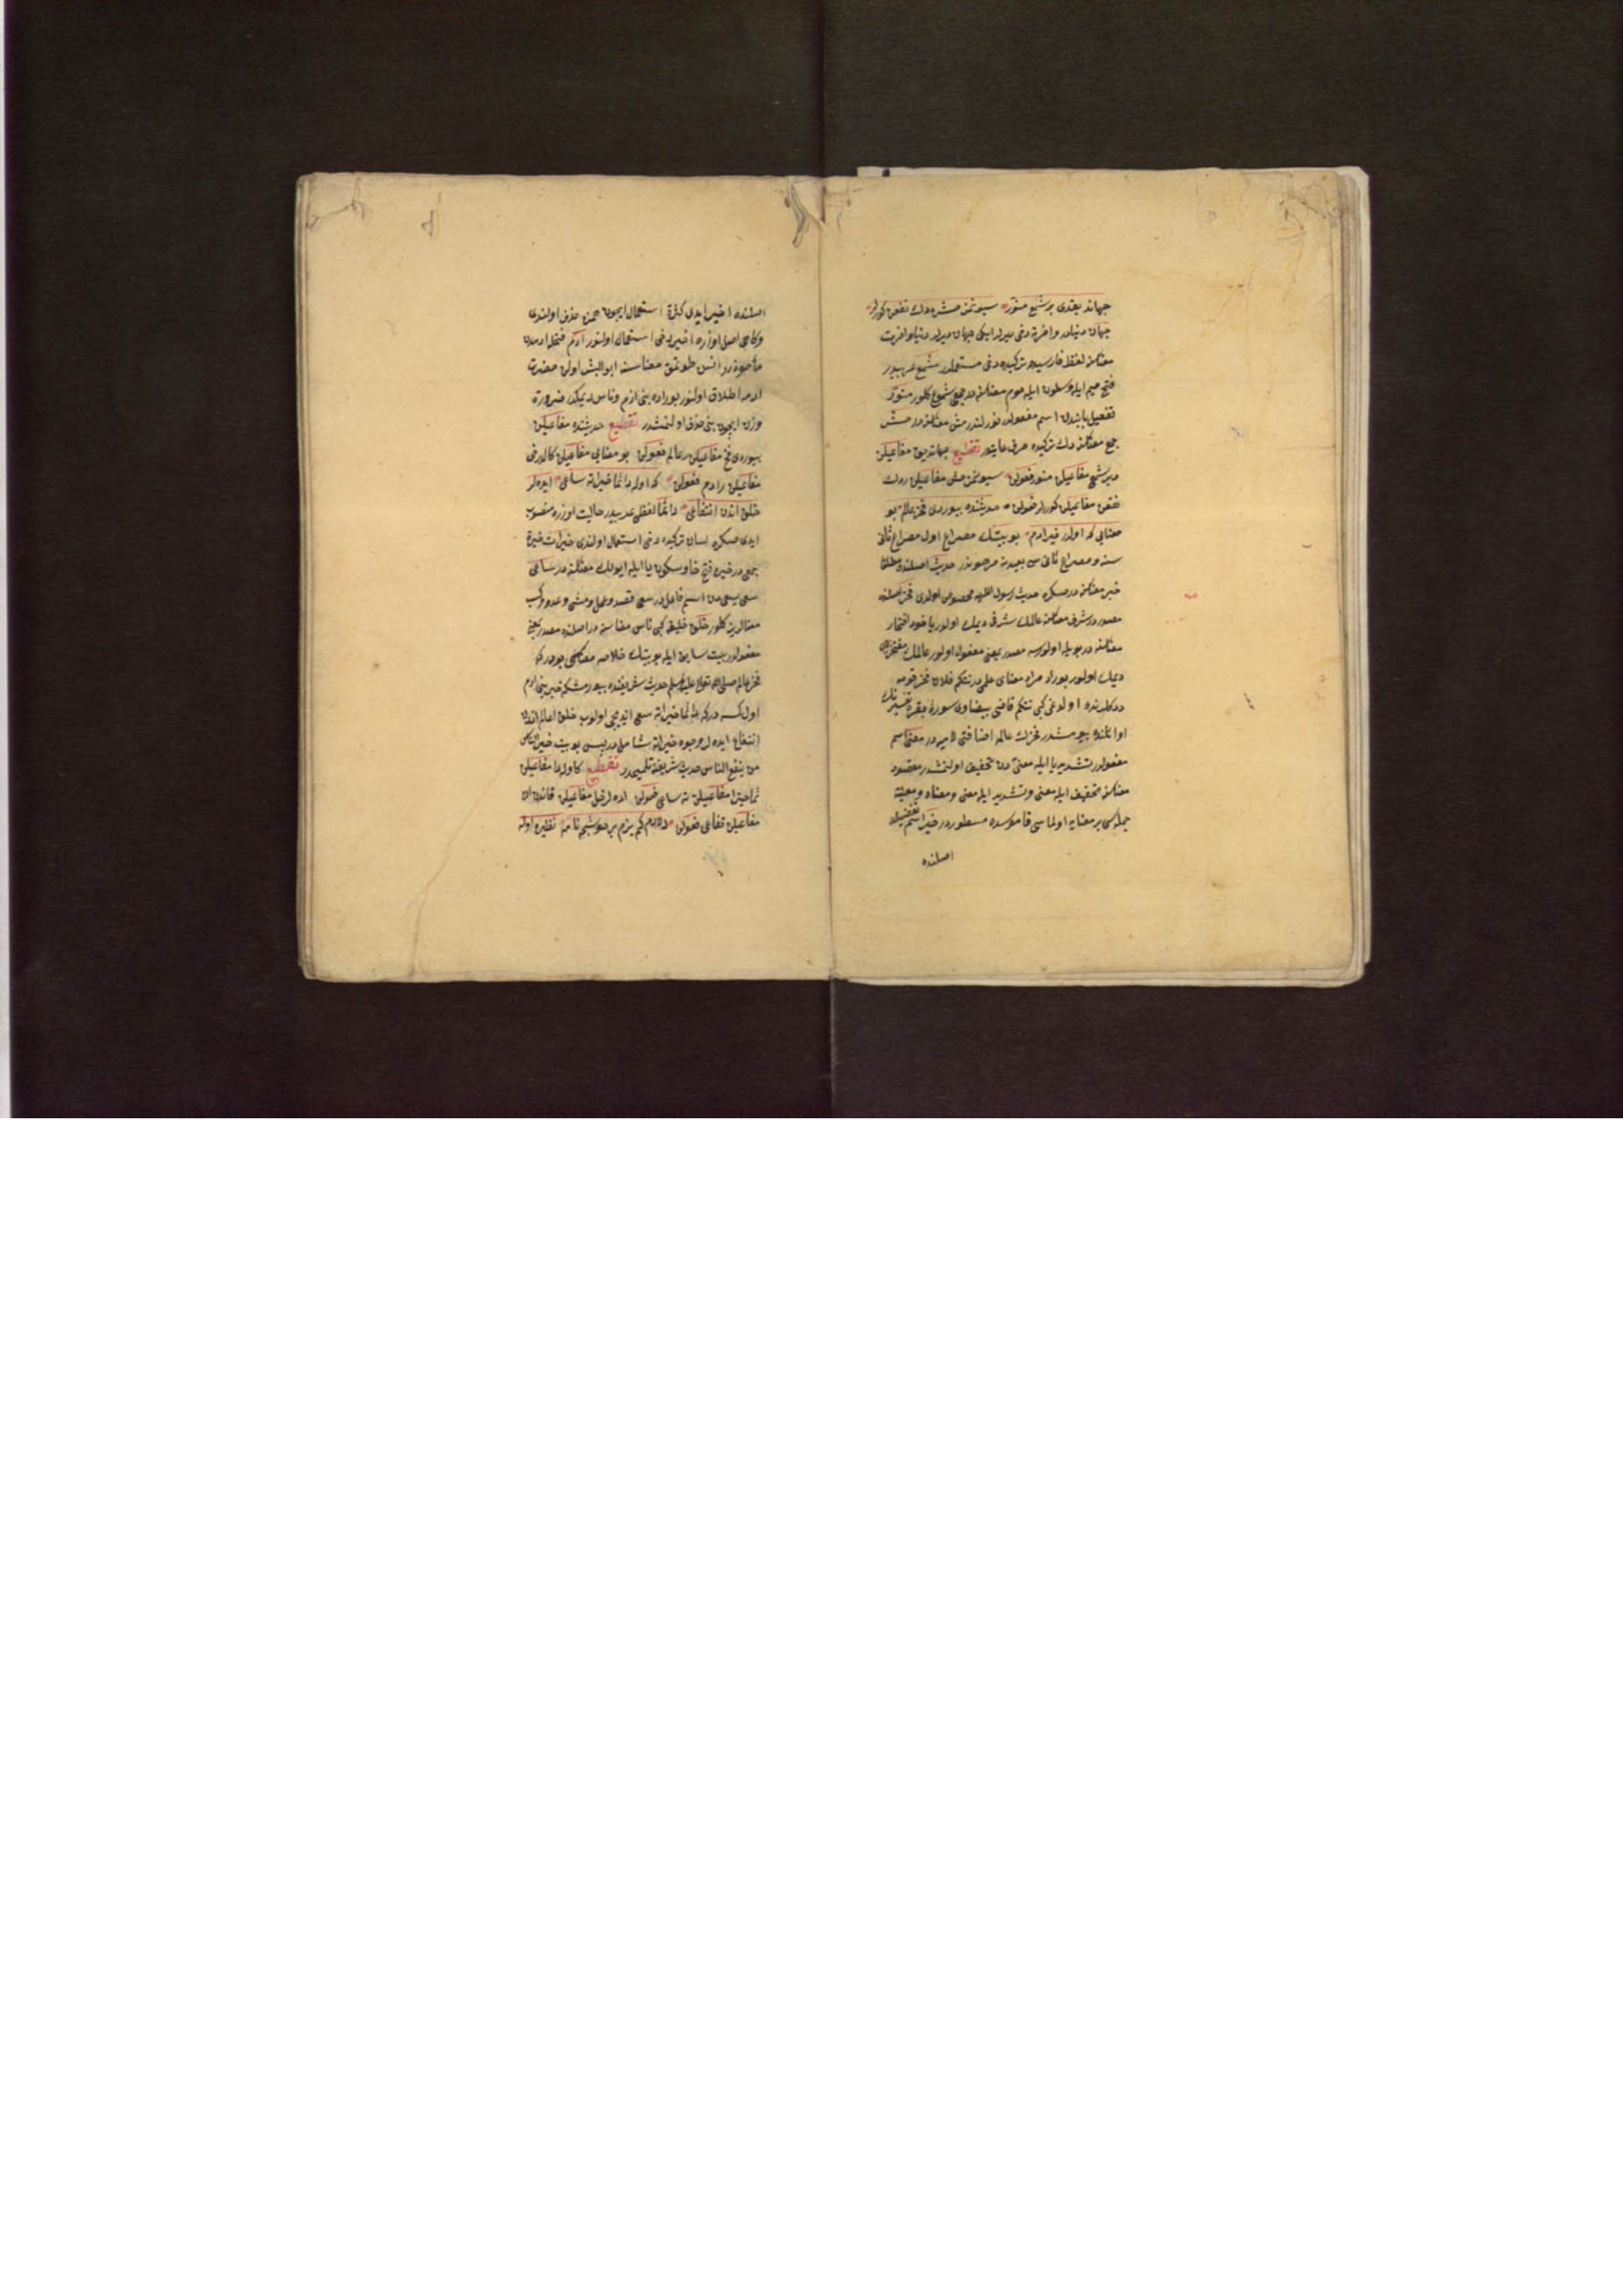 جهانده یقدی بر شمع منور سیو نمن مشرودك نقص كورلر
جهان دنیادر و اخرة دخی دیرلر ایكی جهان دیرلر دنیا و اخرت
معناسنه لفظ فارسیدر تركیده دخی مستعملدر شمع عربیدر
فتح میم ایله و سكون ایله موم معناسنه در جمع شموع كلور منور
تفعیل بابندن اسم مفعولدر نورلندرمش معناسنه در
جمع معناسنه دك تركیده حرف غایتدر تقطیع جهاندیق مفاعیلن
دبرشمع مفاعیلن منور فعولن مفاعیلن
نقص مفاعیلن كورلر فعولن حدیثنده بیوردی فخر عالم بو
معنایی كه اولدر خیر ادم بو بیتك مصراع اول مصراع ثانی
سنه و مصراع ثانی سی بعیدنه مرهوندر حدیث اصلنده مطلقا
خبر معناسنه در صكره حدیث رسول اللهه مخصوص اولدی فخر اصلنده
مصدر در شرف معناسنه عالمك شرفی دیمك اولور یاخود افتخار
معناسنه در بویله اولورسه مصدر بمعنی مفعول اولور عالمك مفتخری
دیمك اولور بوراده مراد معنای علمیدر نتكم فلان فخر قومه
دركلرنده اولدغی كبی نتكم قاضی بیضاوی سورۀ بقره تفسیرنك
اوائلنده بیورمشدر فخرك عالمه اضافتی لامیه در معنی اسم
مفعولدر تشدید یا ایله معنیّ دن تخفیف اولنمشدر مقصود
معناسنه تخفیف ایله معنی و تشدید ایله معنی و معناه و معنیة
جمله سی بر معنایه اولماسی قاموسده مسطوردر خیر اسم تفضیلدر
اصلنده
اصلنده اخیر ایدی كثرة استعمال ایچون همزه حذف اولندی
و كاهی اصلی اوزره اخیر دخی استعمال اولنور آدم فتحله ادمدن
مأخوذدر انس طوتمق معناسنه ابو البشر اولان حضرت
ادمه اطلاق اولنور بوراده بنی ادم و ناس دیمكدر ضرورة
وزن ایچون بنی حذف اولنمشدر تقطیع حدیثنده مفاعیلن
بیوردی فخ مفاعیلن رعالم فعولن بو معنایی مفاعیلن كاولدرخی
مفاعیلن رادم فعولن كه اوله دائما خیراته ساعی ایده لر
خلق اندن انتفاعی دائما لفظی عربیدر حالیت اوزره منصوب
ایدی صكره لسان تركیده دخی استعمال اولندی خیرات خیرة
جمعیدر خیره فتح خا و سكون یا ایله ایولك معناسنه در ساعی
سعی یسعی دن اسم فاعلدر سعی قصد و عمل و مشی و عدو و كسب
معنالرینه كلور خلق خلیقه كبی ناس معناسنه در اصلنده مصدر بمعنی
مفعولدر بیت سابق ایله بو بیتك خلاصه معناسی بودر كه
فخر عالم صلی الله تعالی علیه و سلم حدیث شریفنده بیورمشكه خیر بنی ادم
اول كسه در كه دائما خیراته سعی ایدیجی اولوب خلق عالم اندن
انتفاع ایده لر وجوه خیراته شاملدر پس بو بیت خیر الناس
من ینفع الناس حدیث شریفنه تلمیحدر تقطیع كاوله دا مفاعیلن
ئماخیرا مفاعیلن ته ساعی فعولن اده لر خل مفاعیلن قاندن ان
مفاعیلن تفاعی فعولن نظیره اوله